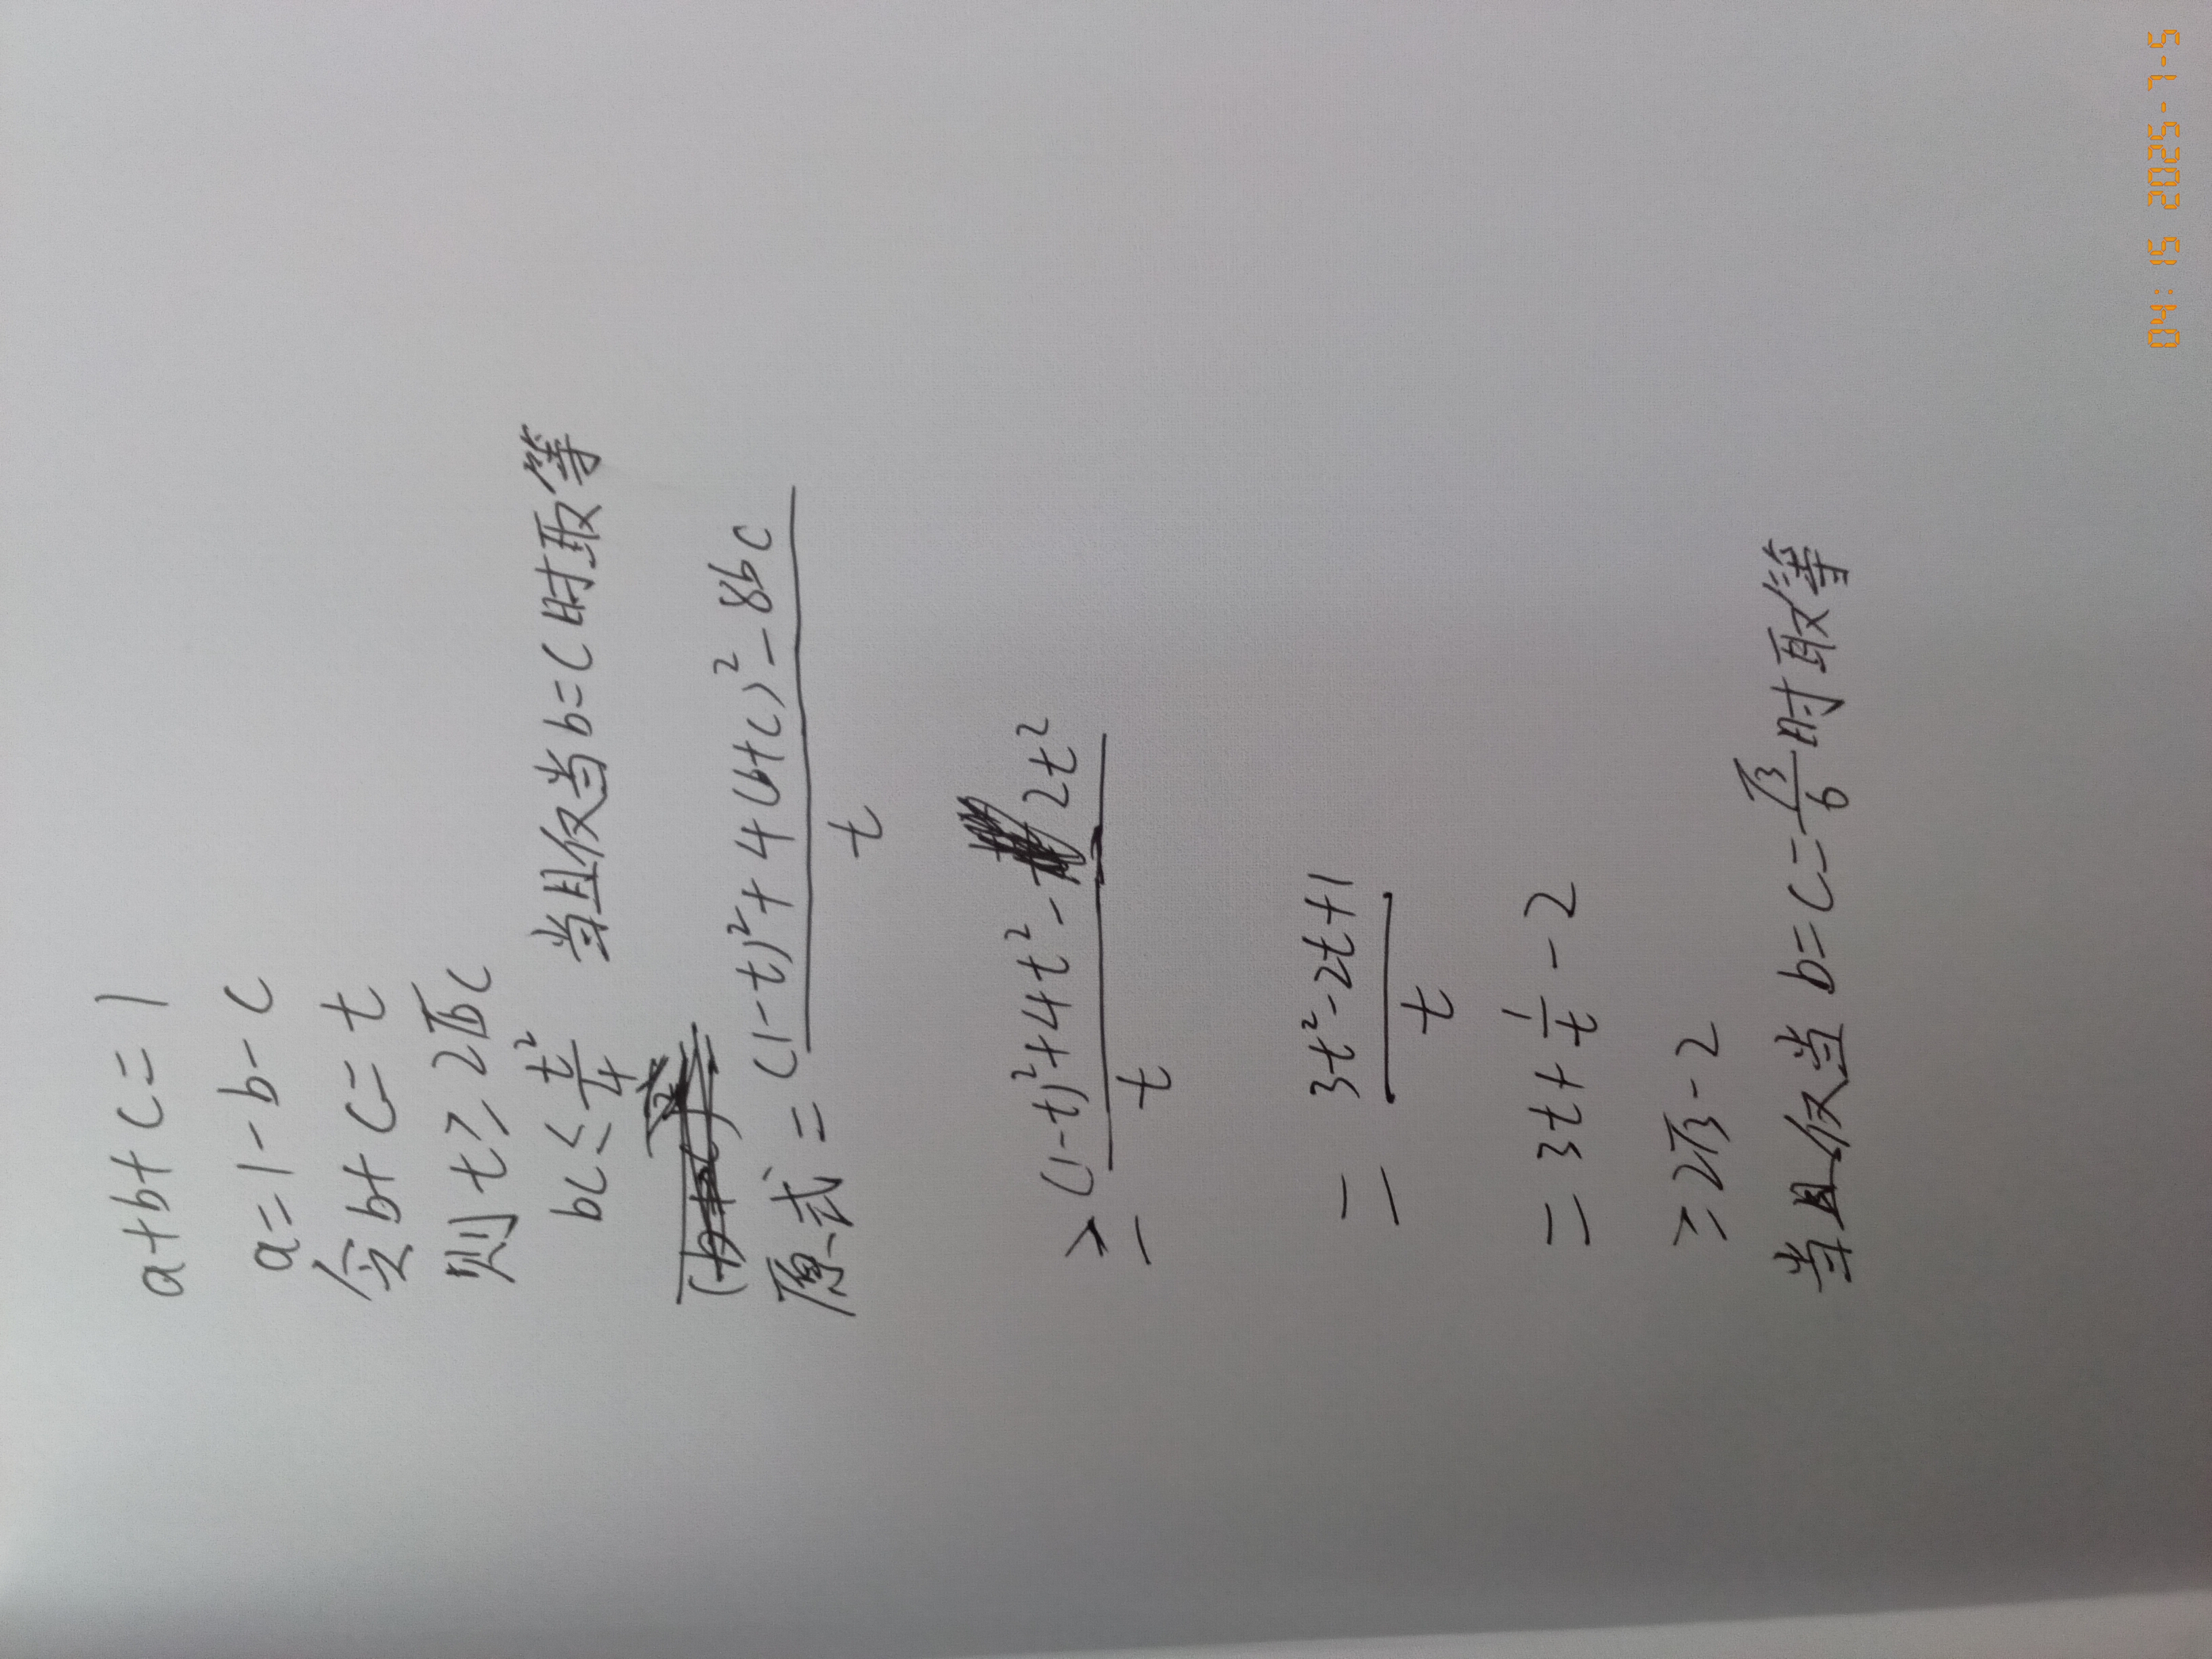 a+b+c=1
a=1-b-c
令b+c=t
则t≥2√bc
bc≤t²/4 当且仅当b=c时取等
原式=((1-t)²+4(b+c)²-8bc)/t
≥((1-t)²+4t²-2t²)/t
=(3t²-2t+1)/t
=3t+1/t-2
≥2√3-2
当且仅当b=c=√3/6时取等
04:15 2025-7-5